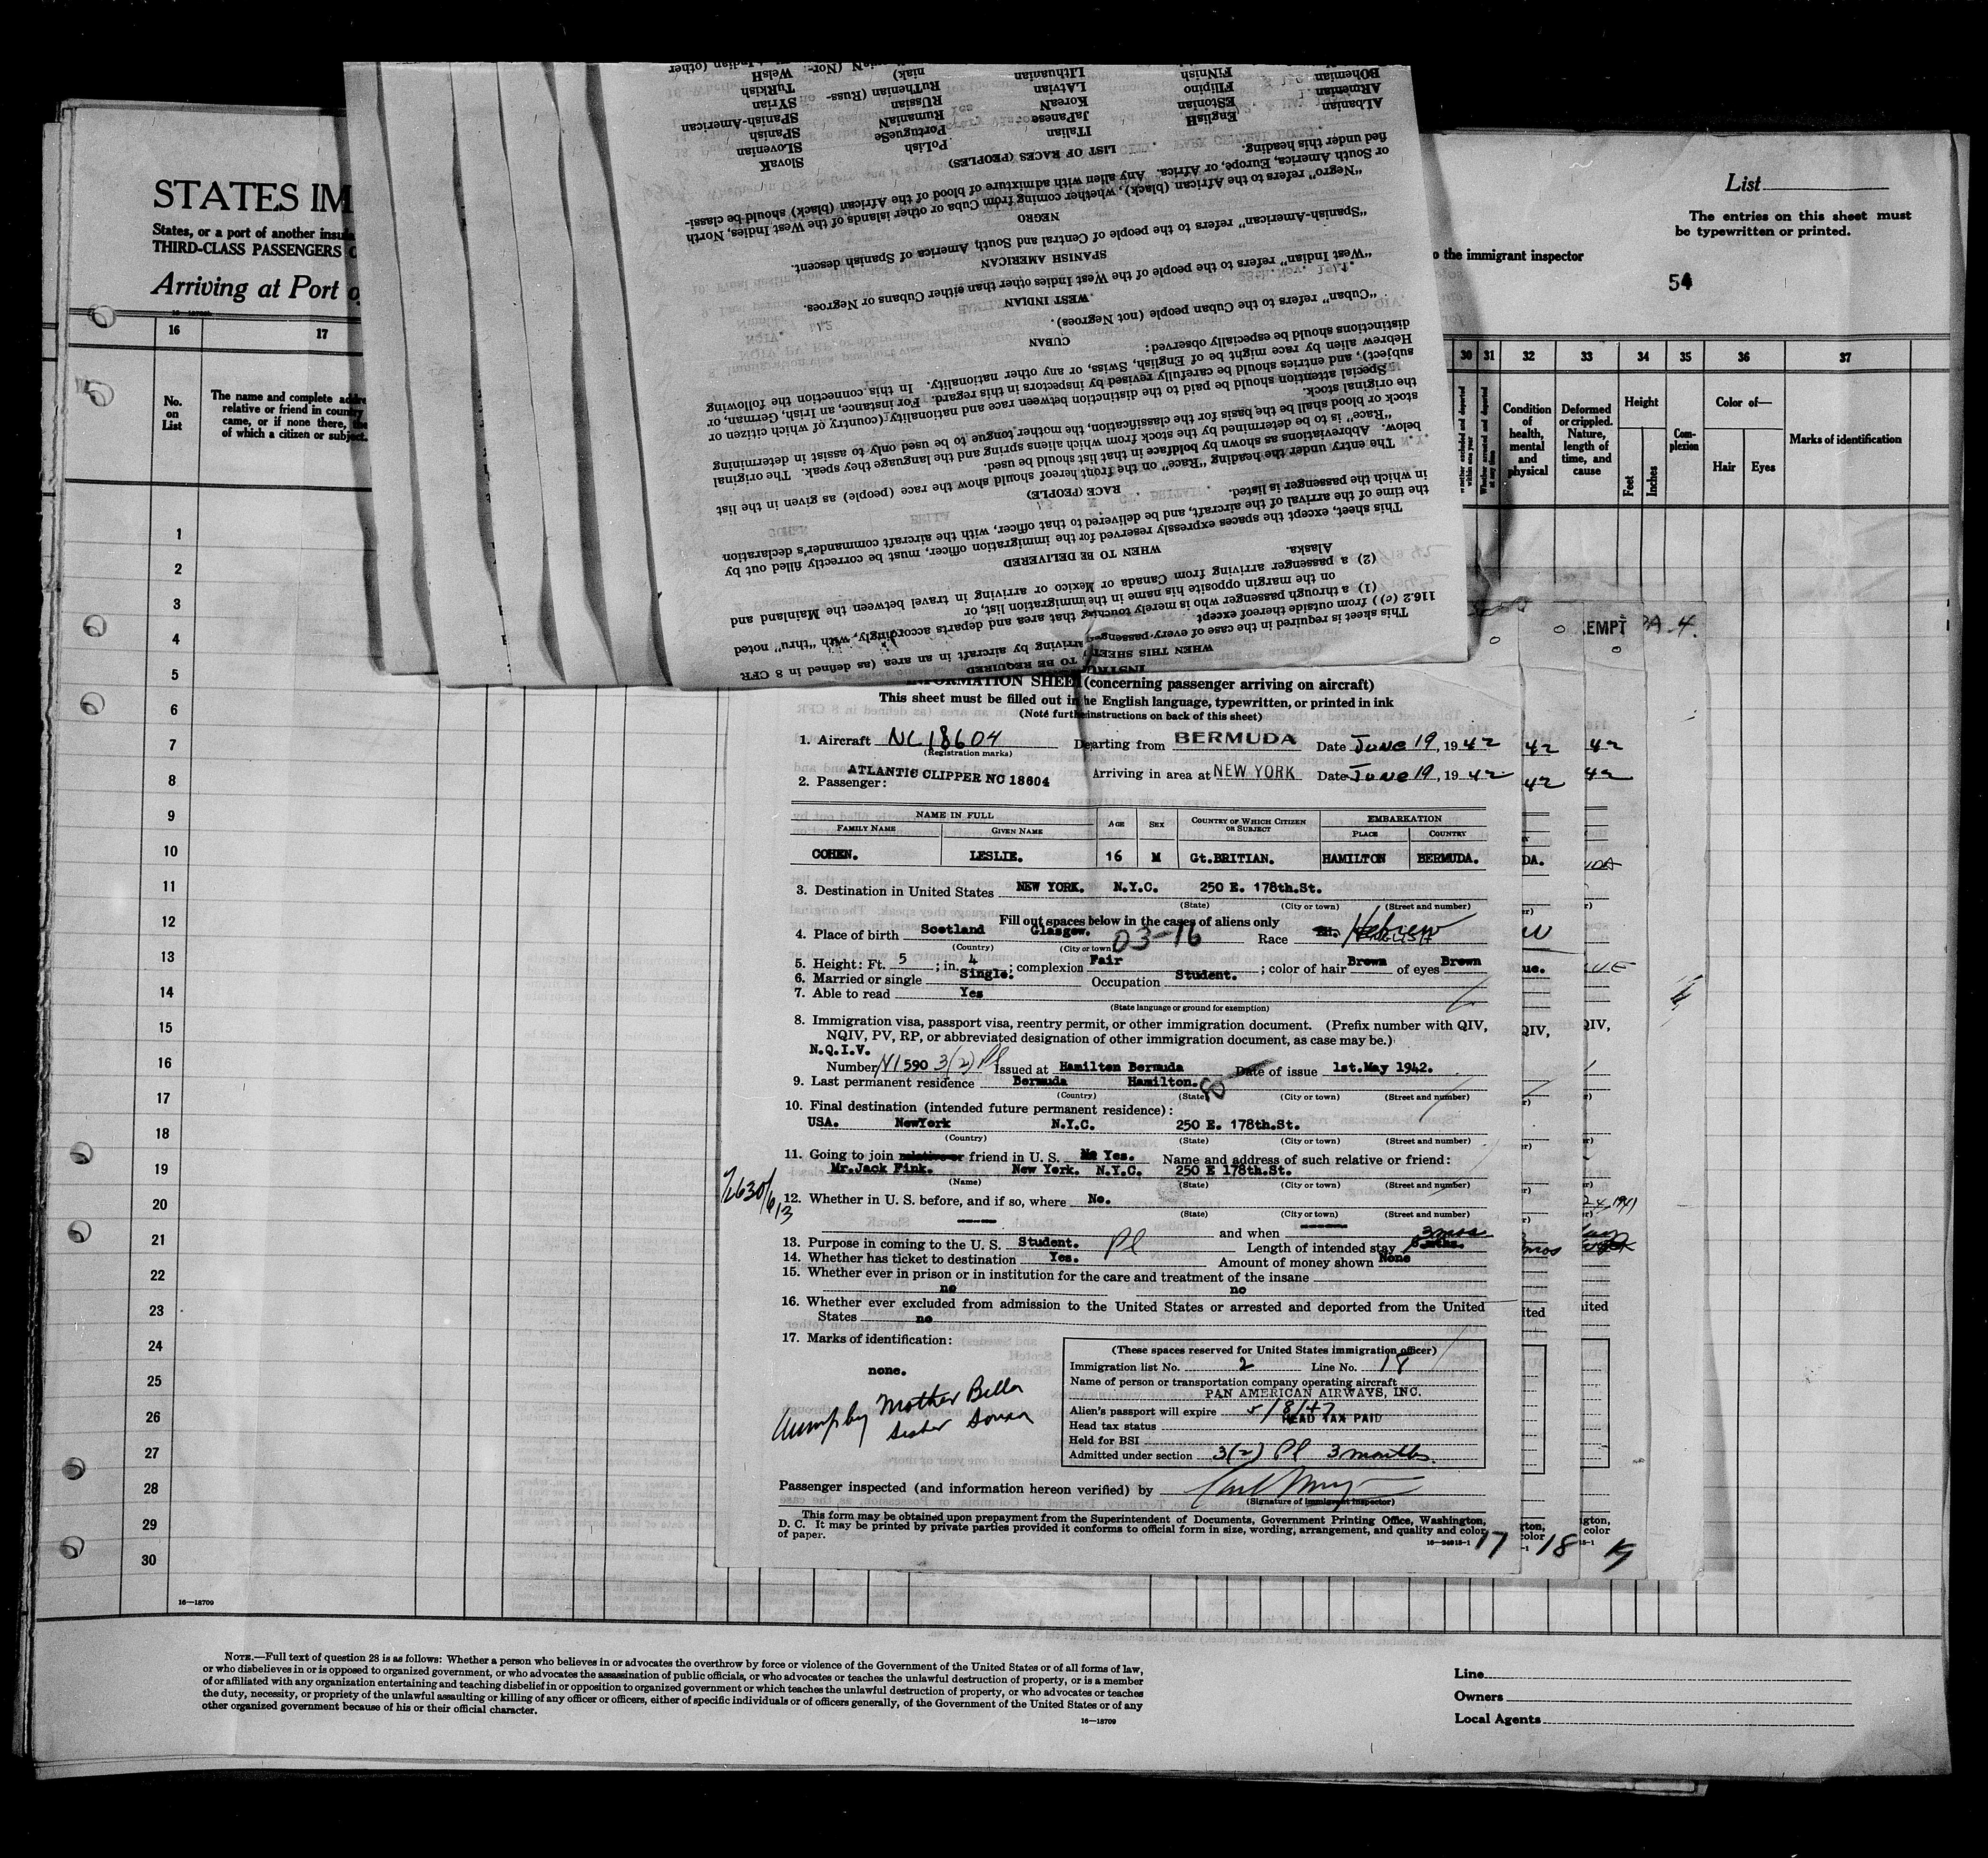 STATES IM
States, or a port of another insula
THIRD-CLASS PASSENGERS
Arriving at Port o
List
The entries on this sheet must
be typewritten or printed.
o the immigrant inspector
54
16
17
30 31 32 33 34 35 36 37
No.
on
List
The name and complete addre
relative or friend in country
came, or if none there, the
of which a citizen or subject.
Condition
of
health,
mental
and
physical
Deformed
or crippled.
Nature,
length of
time, and
cause
Height
Feet
Inches
Com-
plexion
Color of—
Hair Eyes
Marks of identification
1
2
3
4
5
6
7
8
9
10
11
12
13
14
15
16
17
18
19
20
21
22
23
24
25
26
27
28
29
30
16—18709
INSTRU
WHEN THIS SHEET TO BE REQUIRED
This sheet is required in the case of every passenger arriving by aircraft in an area (as defined in 8 CFR
116.2 (c)) from outside thereof except
(1) a through passenger who is merely touching that area and departs accordingly, with "thru" noted
on the margin opposite his name in the immigration list, or
(2) a passenger arriving from Canada or Mexico or arriving in travel between the Mainland and
Alaska.
WHEN TO BE DELIVERED
This sheet, except the spaces expressly reserved for the immigration officer, must be correctly filled out by
the time of the arrival of the aircraft, and be delivered to that officer, with the aircraft commander's declaration
in which the passenger is listed.
RACE (PEOPLE)
The entry under the heading "Race" on the front hereof should show the race (people) as given in the list
below. Abbreviations as shown by boldface in that list should be used.
"Race" is to be determined by the stock from which aliens spring and the language they speak. The original
stock or blood shall be the basis for the classification, the mother tongue to be used only to assist in determining
the original stock.
Special attention should be paid to the distinction between race and nationality (country of which citizen or
subject), and entries should be carefully revised by inspectors in this regard. For instance, an Irish, German, or
Hebrew alien by race might be of English, Swiss, or any other nationality. In this connection the following
distinctions should be especially observed:
CUBAN
"Cuban" refers to the Cuban people (not Negroes).
WEST INDIAN
"West Indian" refers to the people of the West Indies other than either Cubans or Negroes.
SPANISH AMERICAN
"Spanish-American" refers to the people of Central and South America of Spanish descent.
NEGRO
"Negro" refers to the African (black), whether coming from Cuba or other islands of the West Indies, North
or South America, Europe, or Africa. Any alien with admixture of blood of the African (black) should be classi-
fied under this heading.
LIST OF RACES (PEOPLES)
ALbanian EnglisH ITalian PoLish SlovaK
ARmenian EStonian JaPanese PortugueSe SLovenian
BOhemian FIlipino KoreaN RumaniaN SPanish
FiNnish LAtvian RUssian SPanish-American
LIthuanian RuThenian (Russ- SYrian
niak) TuRkish
WelsH
INFORMATION SHEET (concerning passenger arriving on aircraft)
This sheet must be filled out in the English language, typewritten, or printed in ink
(Note further instructions on back of this sheet)
1. Aircraft NC 18604 Departing from BERMUDA Date JUNE 19, 1942
(Registration marks)
ATLANTIC CLIPPER NC 18604 Arriving in area at NEW YORK Date JUNE 19, 1942
2. Passenger:
NAME IN FULL
FAMILY NAME GIVEN NAME
AGE SEX
COUNTRY OF WHICH CITIZEN
OR SUBJECT
EMBARKATION
PLACE COUNTRY
COHEN. LESLIE. 16 M Gt.BRITIAN. HAMILTON BERMUDA.
3. Destination in United States NEW YORK. N.Y.C. 250 E. 178th.St.
(State) (City or town) (Street and number)
Fill out spaces below in the cases of aliens only
4. Place of birth Scotland Glasgow. 03-16 Race Hebrew
(Country) (City or town)
5. Height: Ft. 5 ; in. 4 ; complexion Fair ; color of hair Brown of eyes Brown
6. Married or single Single. Occupation Student.
7. Able to read Yes
(State language or ground for exemption)
8. Immigration visa, passport visa, reentry permit, or other immigration document. (Prefix number with QIV,
NQIV, PV, RP, or abbreviated designation of other immigration document, as case may be.)
N.Q.I.V.
Number 590 3(2) Pl Issued at Hamilton Bermuda Date of issue 1st.May 1942.
9. Last permanent residence Bermuda Hamilton.
(Country) (State) (City or town) (Street and number)
10. Final destination (intended future permanent residence):
USA. NewYork N.Y.C. 250 E. 178th.St.
(Country) (State) (City or town) (Street and number)
11. Going to join relative or friend in U. S. No Yes. Name and address of such relative or friend:
Mr.Jack Fink. New York. N.Y.C. 250 E 178th.St.
(Name) (State) (City or town) (Street and number)
12. Whether in U. S. before, and if so, where No.
(State) (City or town) (Street and number)
and when
13. Purpose in coming to the U. S. Student. Pl Length of intended stay 3 mos
14. Whether has ticket to destination Yes. Amount of money shown None
15. Whether ever in prison or in institution for the care and treatment of the insane
no no
16. Whether ever excluded from admission to the United States or arrested and deported from the United
States no
17. Marks of identification:
none.
Accomp by Mother Bella
Sister
(These spaces reserved for United States immigration officer)
Immigration list No. 2 Line No. 18
Name of person or transportation company operating aircraft
PAN AMERICAN AIRWAYS, INC.
Alien's passport will expire 5/8/47
HEAD TAX PAID
Head tax status
Held for BSI
Admitted under section 3(2) Pl 3 months.
Passenger inspected (and information hereon verified) by
(Signature of immigrant inspector)
This form may be obtained upon prepayment from the Superintendent of Documents, Government Printing Office, Washington,
D. C. It may be printed by private parties provided it conforms to official form in size, wording, arrangement, and quality and color
of paper.
17 18 19
NOTE.—Full text of question 28 is as follows: Whether a person who believes in or advocates the overthrow by force or violence of the Government of the United States or of all forms of law,
or who disbelieves in or is opposed to organized government, or who advocates the assassination of public officials, or who advocates or teaches the unlawful destruction of property, or is a member
of or affiliated with any organization entertaining and teaching disbelief in or opposition to organized government or which teaches the unlawful destruction of property, or who advocates or teaches
the duty, necessity, or propriety of the unlawful assaulting or killing of any officer or officers, either of specific individuals or of officers generally, of the Government of the United States or of any
other organized government because of his or their official character.
16—18709
Line
Owners
Local Agents